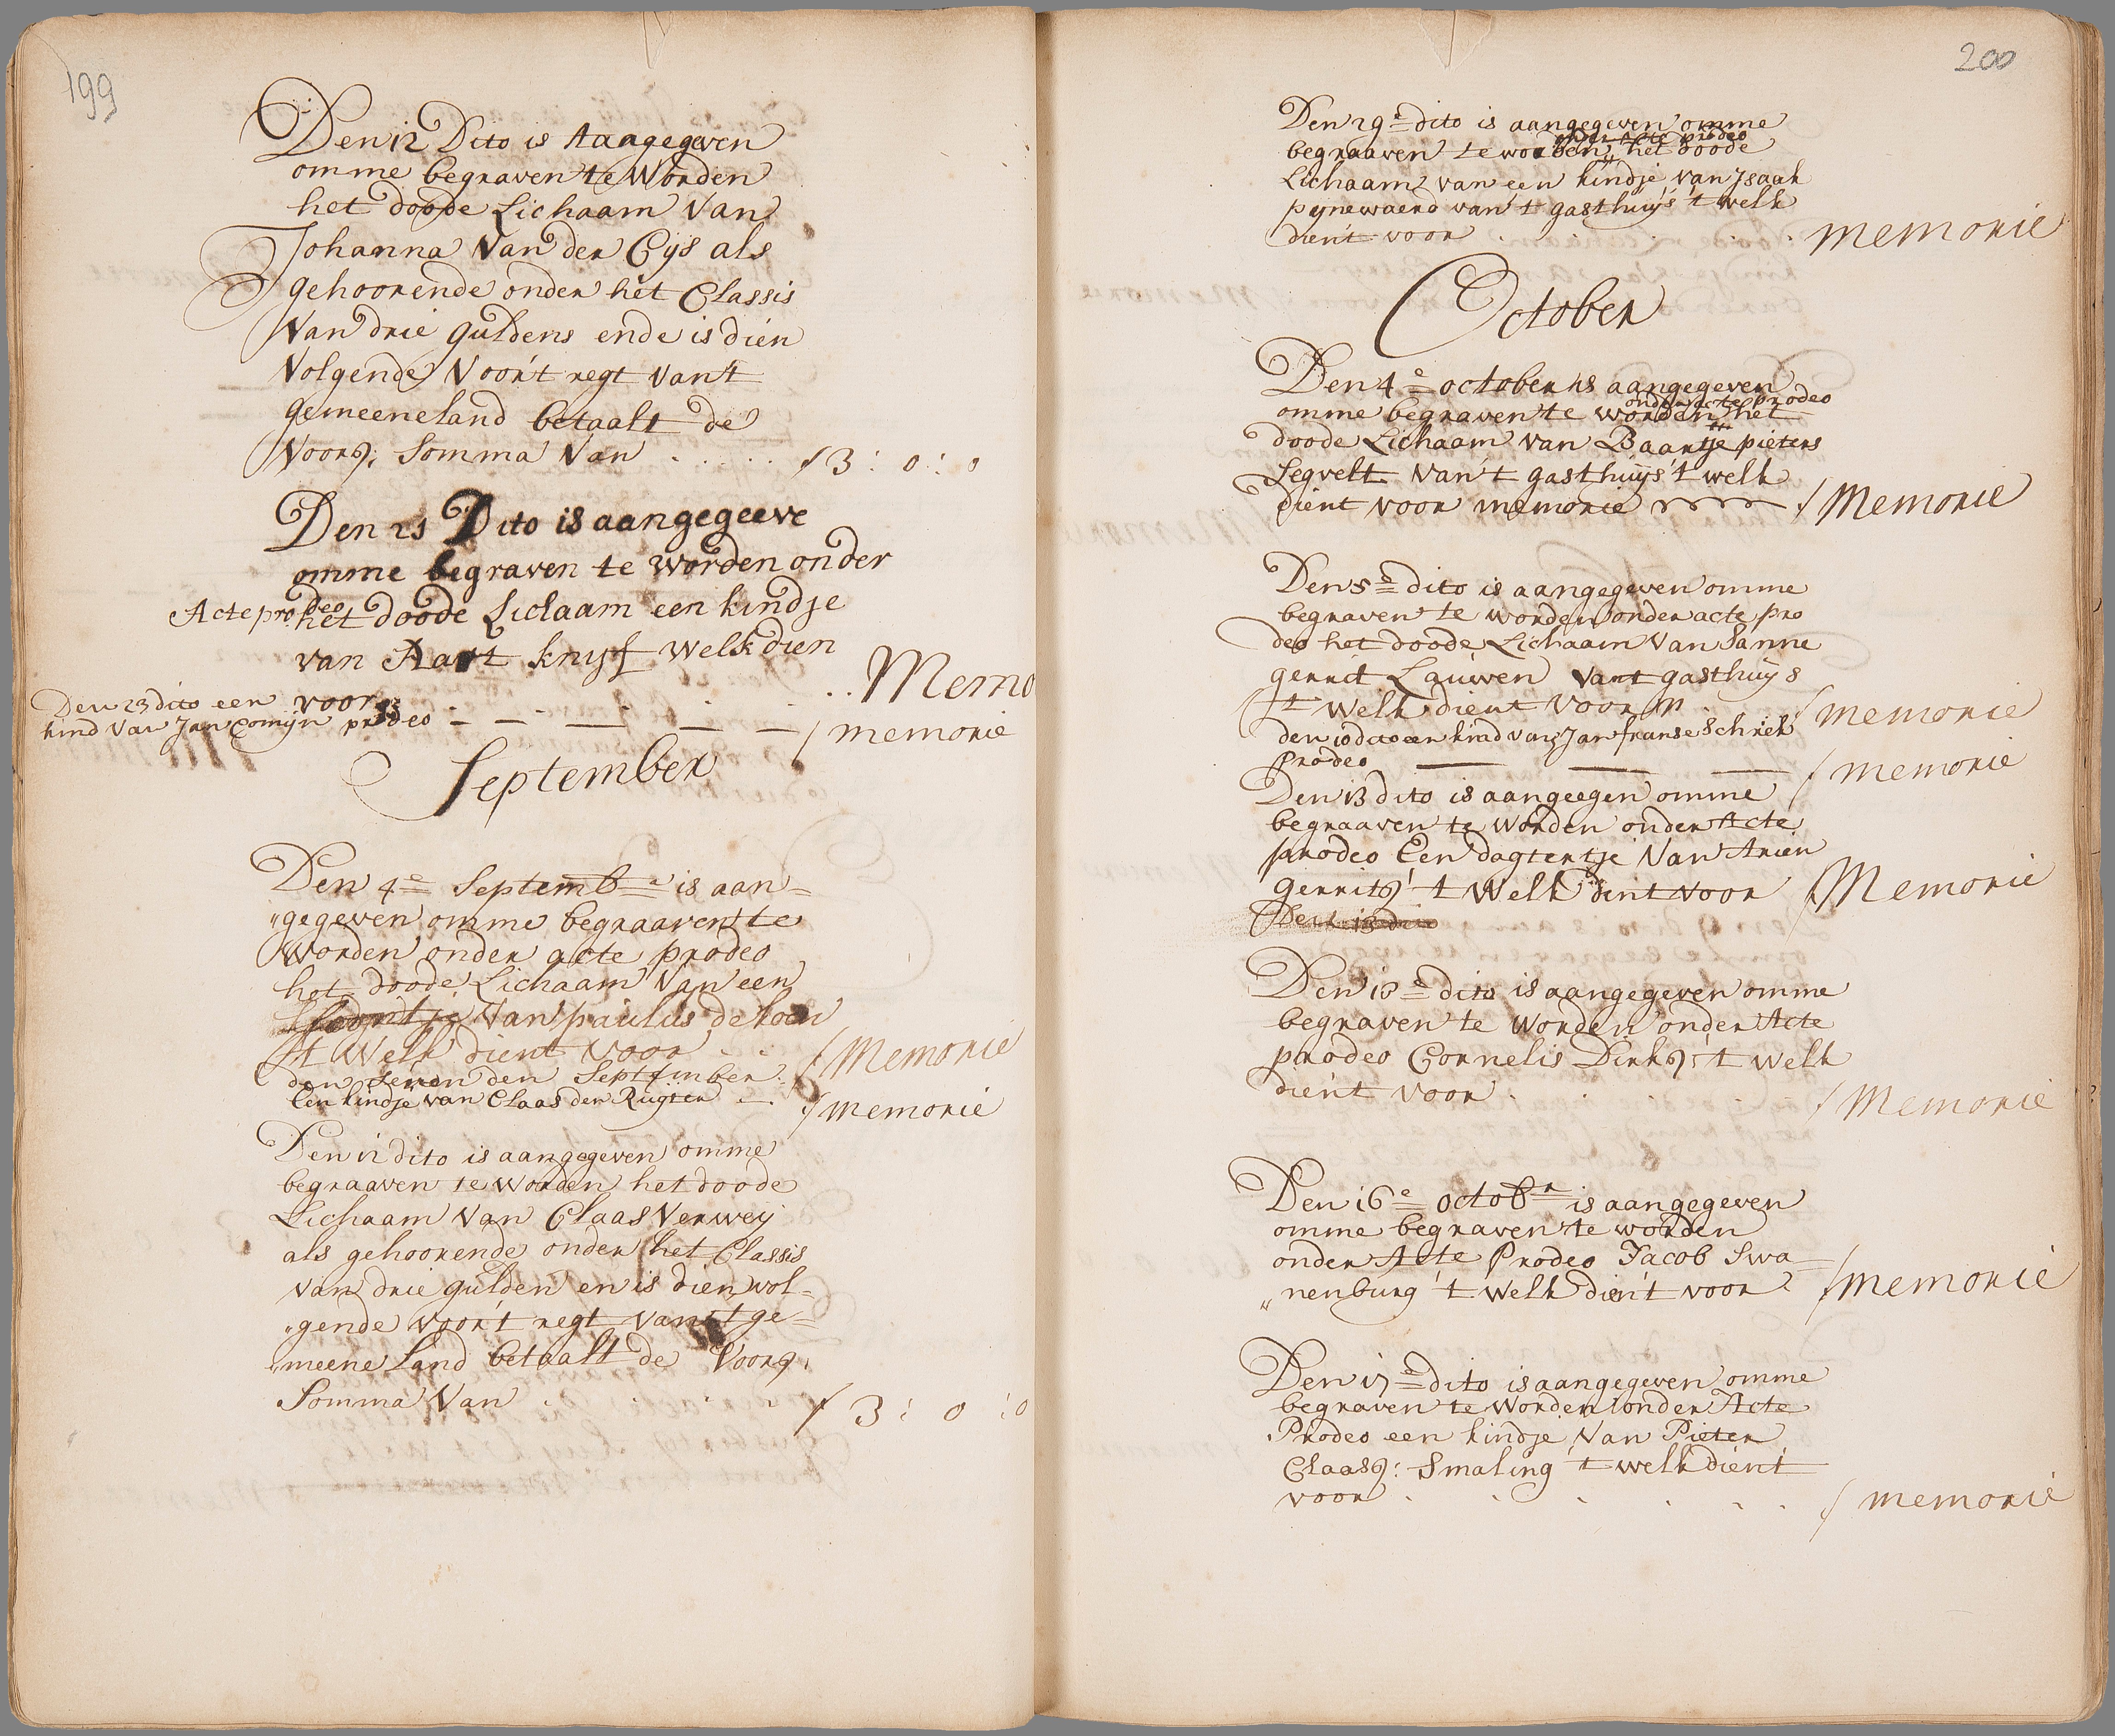 199
Den 12 Dito is Aangegeven
omme begraven te Worden
het doode Lichaam Van
Johanna Van der Eijs als
gehoorende onder het Classis
Van drie guldens ende is dien
Volgende Voor't regt van't
gemeeneland betaalt de
Voorsz: Somma Van . . . . . f 3 : 0 : 0
Den 21 Dito is aangegeeve
omme begraven te worden onder
Acte pro deo het doode Lichaam een kindje
van Aart knijf welk dien
voor . . Memo
Den 23 dito een
kind Van Jan Comijn prodeo — — — — — / memorie
September
Den 4e Septembe is aan=
"gegeven omme begraaven te
Worden onder acte prodeo
het doode Lichaam Van een
Van paulus de
't Welk dient Voor . . / Memorie
den seven den September
Een kindje van Claas der Rugter — / memorie
Den 12 dito is aangegeven omme
begraaven te worden het doode
Lichaam Van Claas Verweij
als gehoorende onder het Classis
van drie gulden en is dien vol=
"gende voor't regt van't ge=
"meene Land betaalt de Voorsz:
Somma Van . . . . f 3 : 0 : 0
200
Den 29e dito is aangegeven omme
onder acte prodeo
begraaven te worden " het doode
Lichaam van een kindje van Isaak
pijnewaerd van't gasthuijs 't welk
dient voor . . . . . memorie
October
Den 4e october is aangegeven
onder acte prodeo
omme begraven te worden " het
doode Lichaam van Baartje pieters
Segvelt van't gasthuijs 't welk
dient voor memorie / Memorie
Den 5e dito is aangegeven omme
begraven te worden onder acte pro
deo het doode Lichaam Van Sanne
gerrit Lauwen van't gasthuijs
't welk dient voor m . / memorie
den 10 dito een kind van Jan franse Schrek
Prodeo — — — / memorie
Den 13 dito is aangeegen omme
begraaven te worden onder Acte
prodeo Een dogtertje Van Arien
Gerritsz 't Welk dint voor / Memorie
Den 13 dito
Den 16e dito is aangegeven omme
begraven te worden onder Acte
prodeo Cornelis Dirksz: 't welk
dient voor . . . . / Memorie
Den 16e octobr is aangegeven
omme begraven te worden
onder Acte Prodeo Jacob Swa=
"nenburg 't welk dien't voor / memorie
Den 17e dito is aangegeven omme
begraven te worden onder Acte
Prodeo een kindje Van Pieter
Claasz: Smaling 't welk dient
voor . . . . . . / memorie